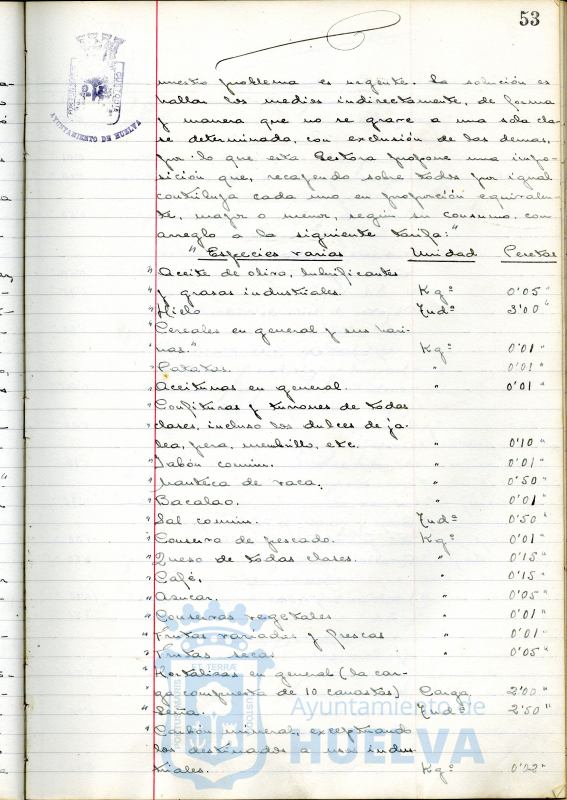 53
AYUNTAMIENTO DE HUELVA
nuestro problema es urgente. La solución es
hallar los medios indirectamente, de forma
y manera que no se grave a una sola cla-
se determinada, con exclusión de las demas,
por lo que esta Gestora propone una impo-
sición que, recayendo sobre todos por igual
contribuya cada uno en proporción equivalen-
te, mayor o menor, según su consumo, con
arreglo a la siguiente tarifa:"
" Especies varias Unidad Pesetas
" Aceite de oliva, lubrificantes
" y grasas industriales. Kgº 0'05 "
" Hielo 3'00 "
" Cereales en general y sus hari-
" nas." Kgº 0'01 "
" Patatas. " 0'01 "
" Aceitunas en general. " 0'01 "
" Confituras y turrones de todas
" clases, incluso los dulces de ja-
" lea, pera, membrillo, etc. " 0'10 "
" Jabón común. " 0'01 "
" Manteca de vaca. " 0'50 "
" Bacalao. " 0'01 "
" Sal común. 0'50 "
" Conserva de pescado. Kgº 0'01 "
" Queso de todas clases. " 0'15 "
" Café. " 0'15 "
" Azucar. " 0'05 "
" Conservas vegetales " 0'01 "
" Frutas variadas y frescas " 0'01 "
" Frutas secas " 0'05 "
" Hortalizas en general (la car-
" ga compuesta de 10 canastos) Carga 2'00 "
" Leña. 2'50 "
" Carbón mineral, exceptuando
" los destinados a usos indus-
" triales. Kgº 0'22 "
Ayuntamiento de
HUELVA